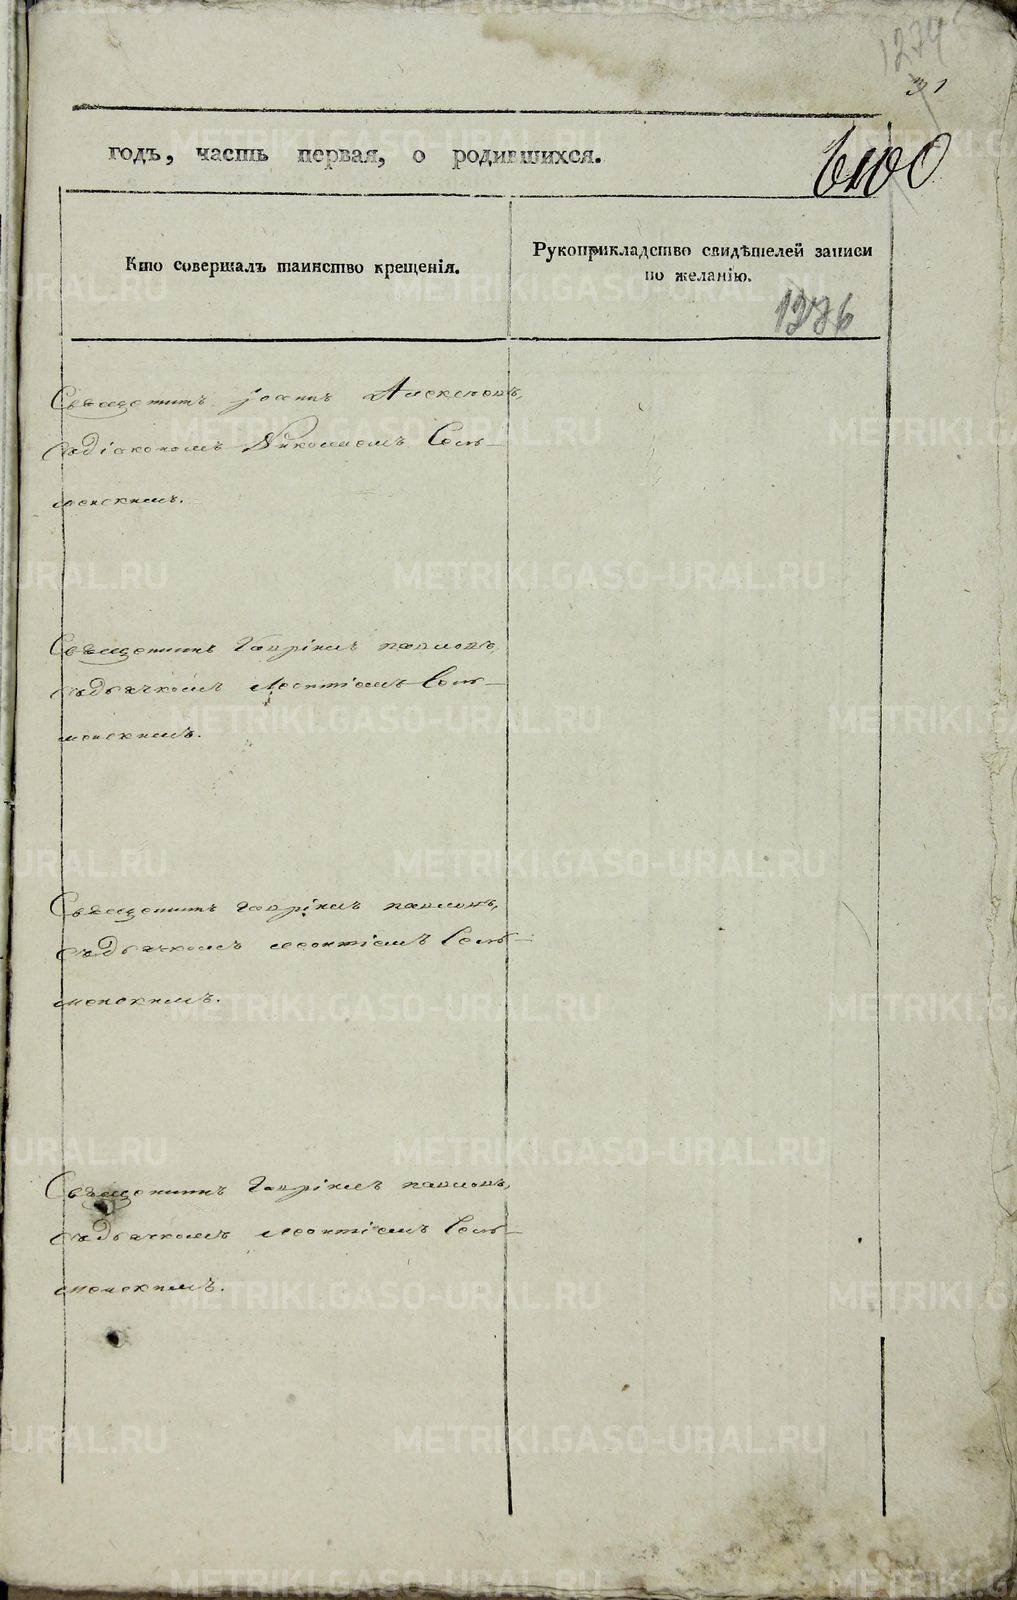 1274
31
годъ, часть первая, о родившихся.
Кто совершалъ таинство крещенія.
Рукоприкладство свидѣтелей записи
по желанію.
1376
Священникъ Іоаннъ Алексѣевъ,
съ діакономъ Николаемъ Сель-
менскимъ.
Священникъ Гавріилъ Павловъ,
съ дьячкомъ Леонтіемъ Сель-
менскимъ.
Священникъ Гавріилъ Павловъ,
съ дьячкомъ Леонтіемъ Сель-
менскимъ.
Священникъ Гавріилъ Павловъ,
съ дьячкомъ Леонтіемъ Сель-
менскимъ.
METRIKI.GASO-URAL.RU